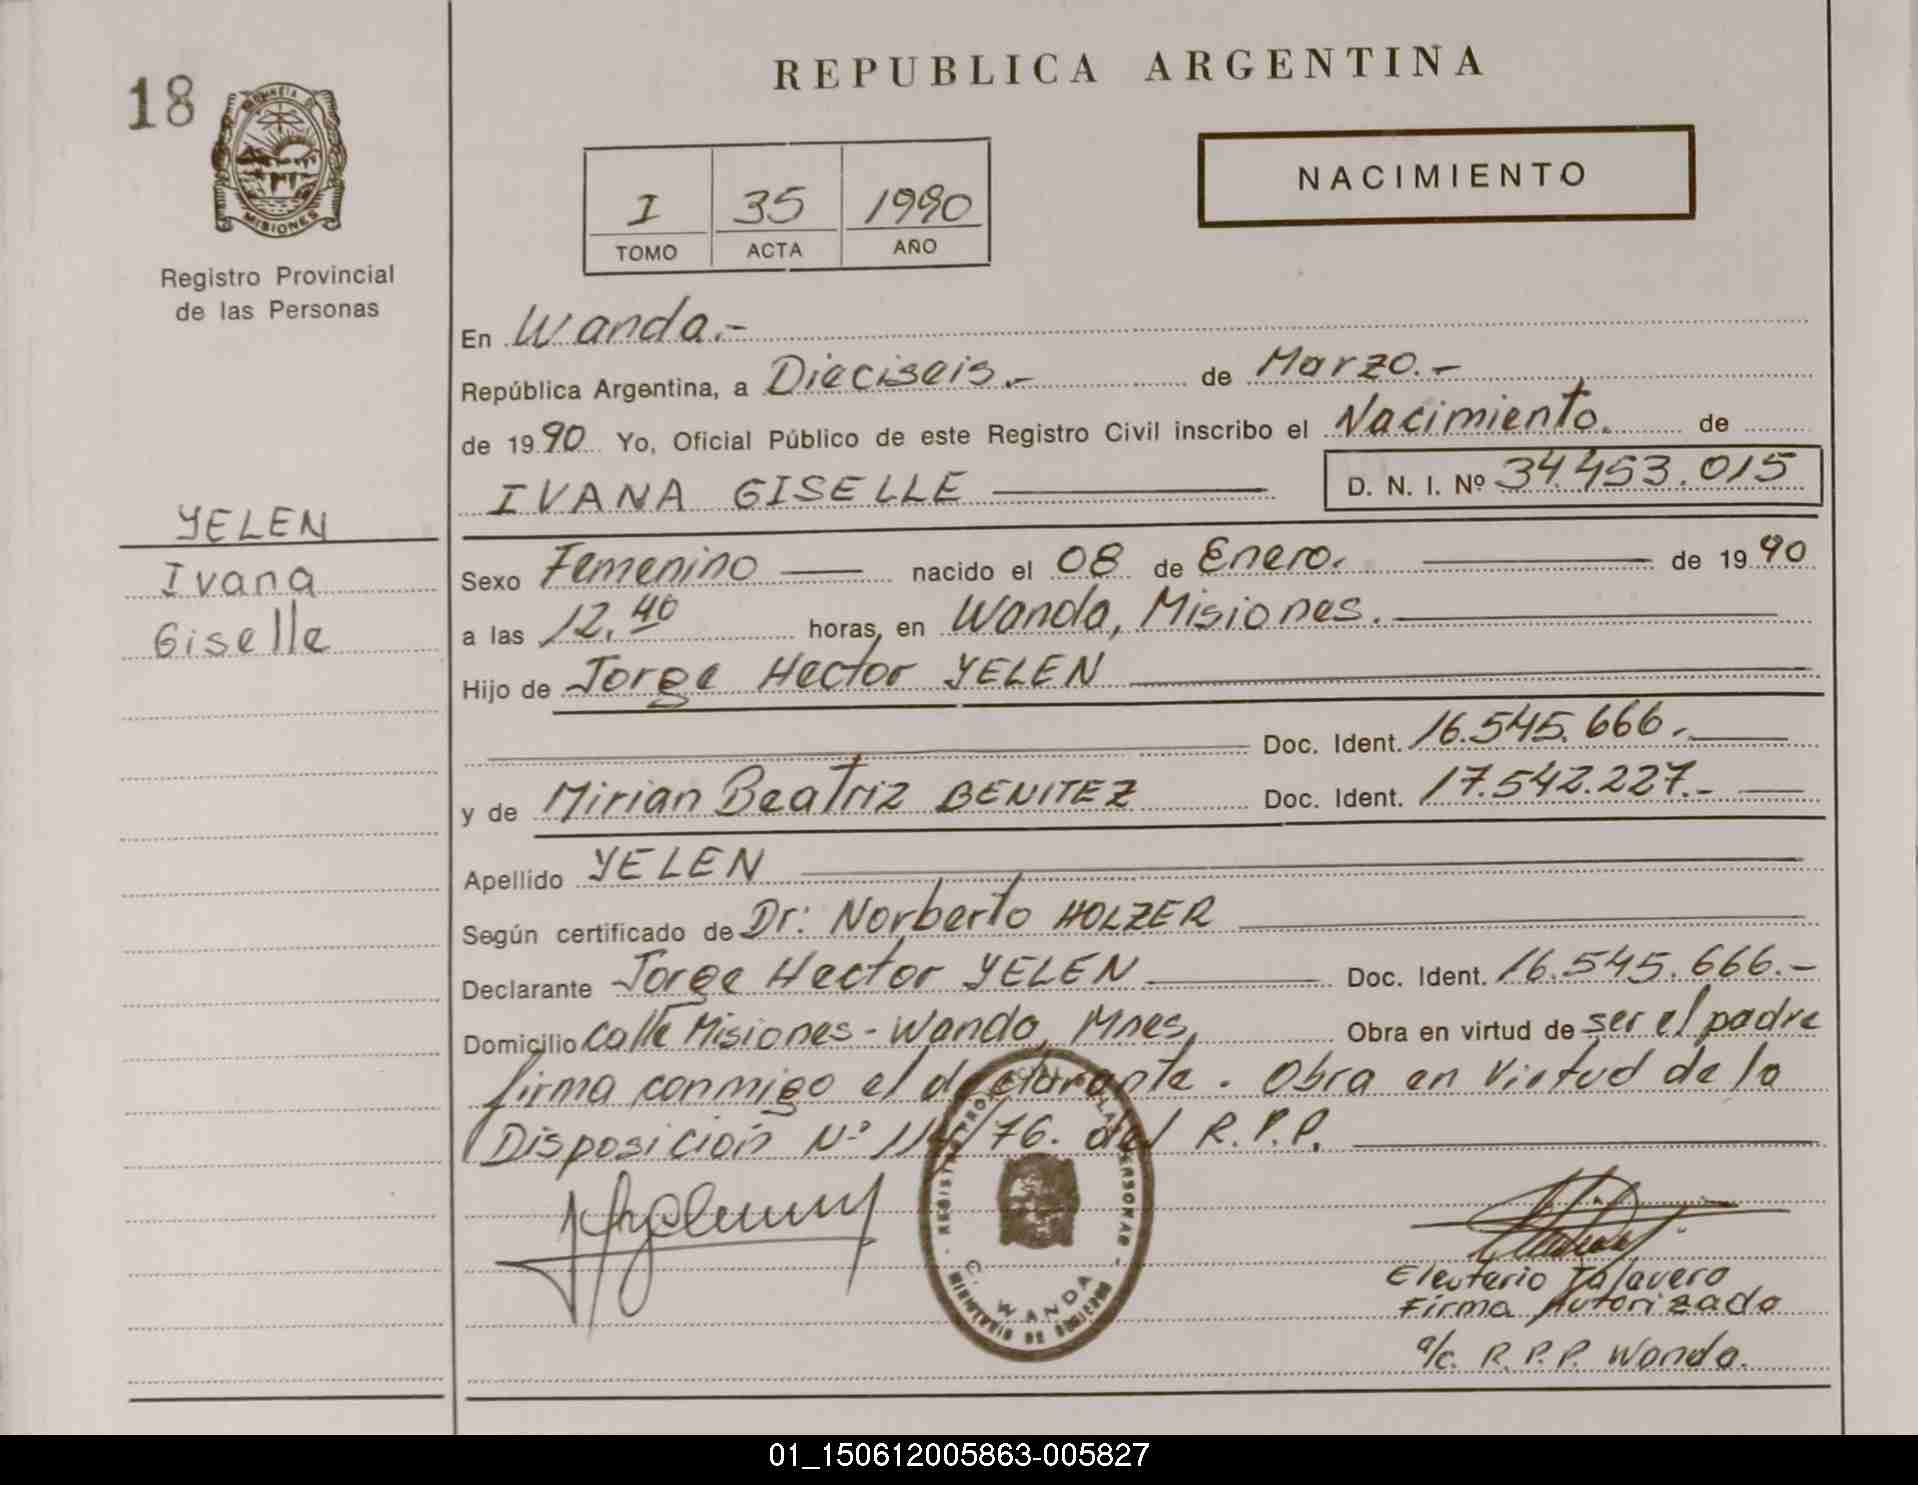 18
PROVINCIA DE
MISIONES
Registro Provincial
de las Personas
YELEN
Ivana
Giselle
REPUBLICA ARGENTINA
NACIMIENTO
I 35 1990
TOMO ACTA AÑO
En Wanda.-
República Argentina, a Dieciseis.- de Marzo.-
de 1990 Yo, Oficial Público de este Registro Civil inscribo el Nacimiento. de
IVANA GISELLE D. N. I. Nº 34.453.015
Sexo Femenino nacido el 08 de Enero. de 1990
a las 12,40 horas, en Wanda, Misiones.
Hijo de Jorge Hector YELEN
Doc. Ident. 16.545.666.-
y de Mirian Beatriz BENITEZ Doc. Ident. 17.542.227.-
Apellido YELEN
Según certificado de Dr: Norberto HOLZER
Declarante Jorge Hector YELEN Doc. Ident. 16.545.666.-
Domicilio Calle Misiones - Wanda, Mnes, Obra en virtud de ser el padre
firma conmigo el declarante. Obra en Virtud de la
Disposición Nº /76. del R.P.P.
REGISTRO PROVINCIAL DE LAS PERSONAS
C. WANDA
MINISTERIO DE GOBIERNO
Eleuterio Talavera
Firma Autorizada
a/c. R.P.P. Wanda.
01_150612005863-005827